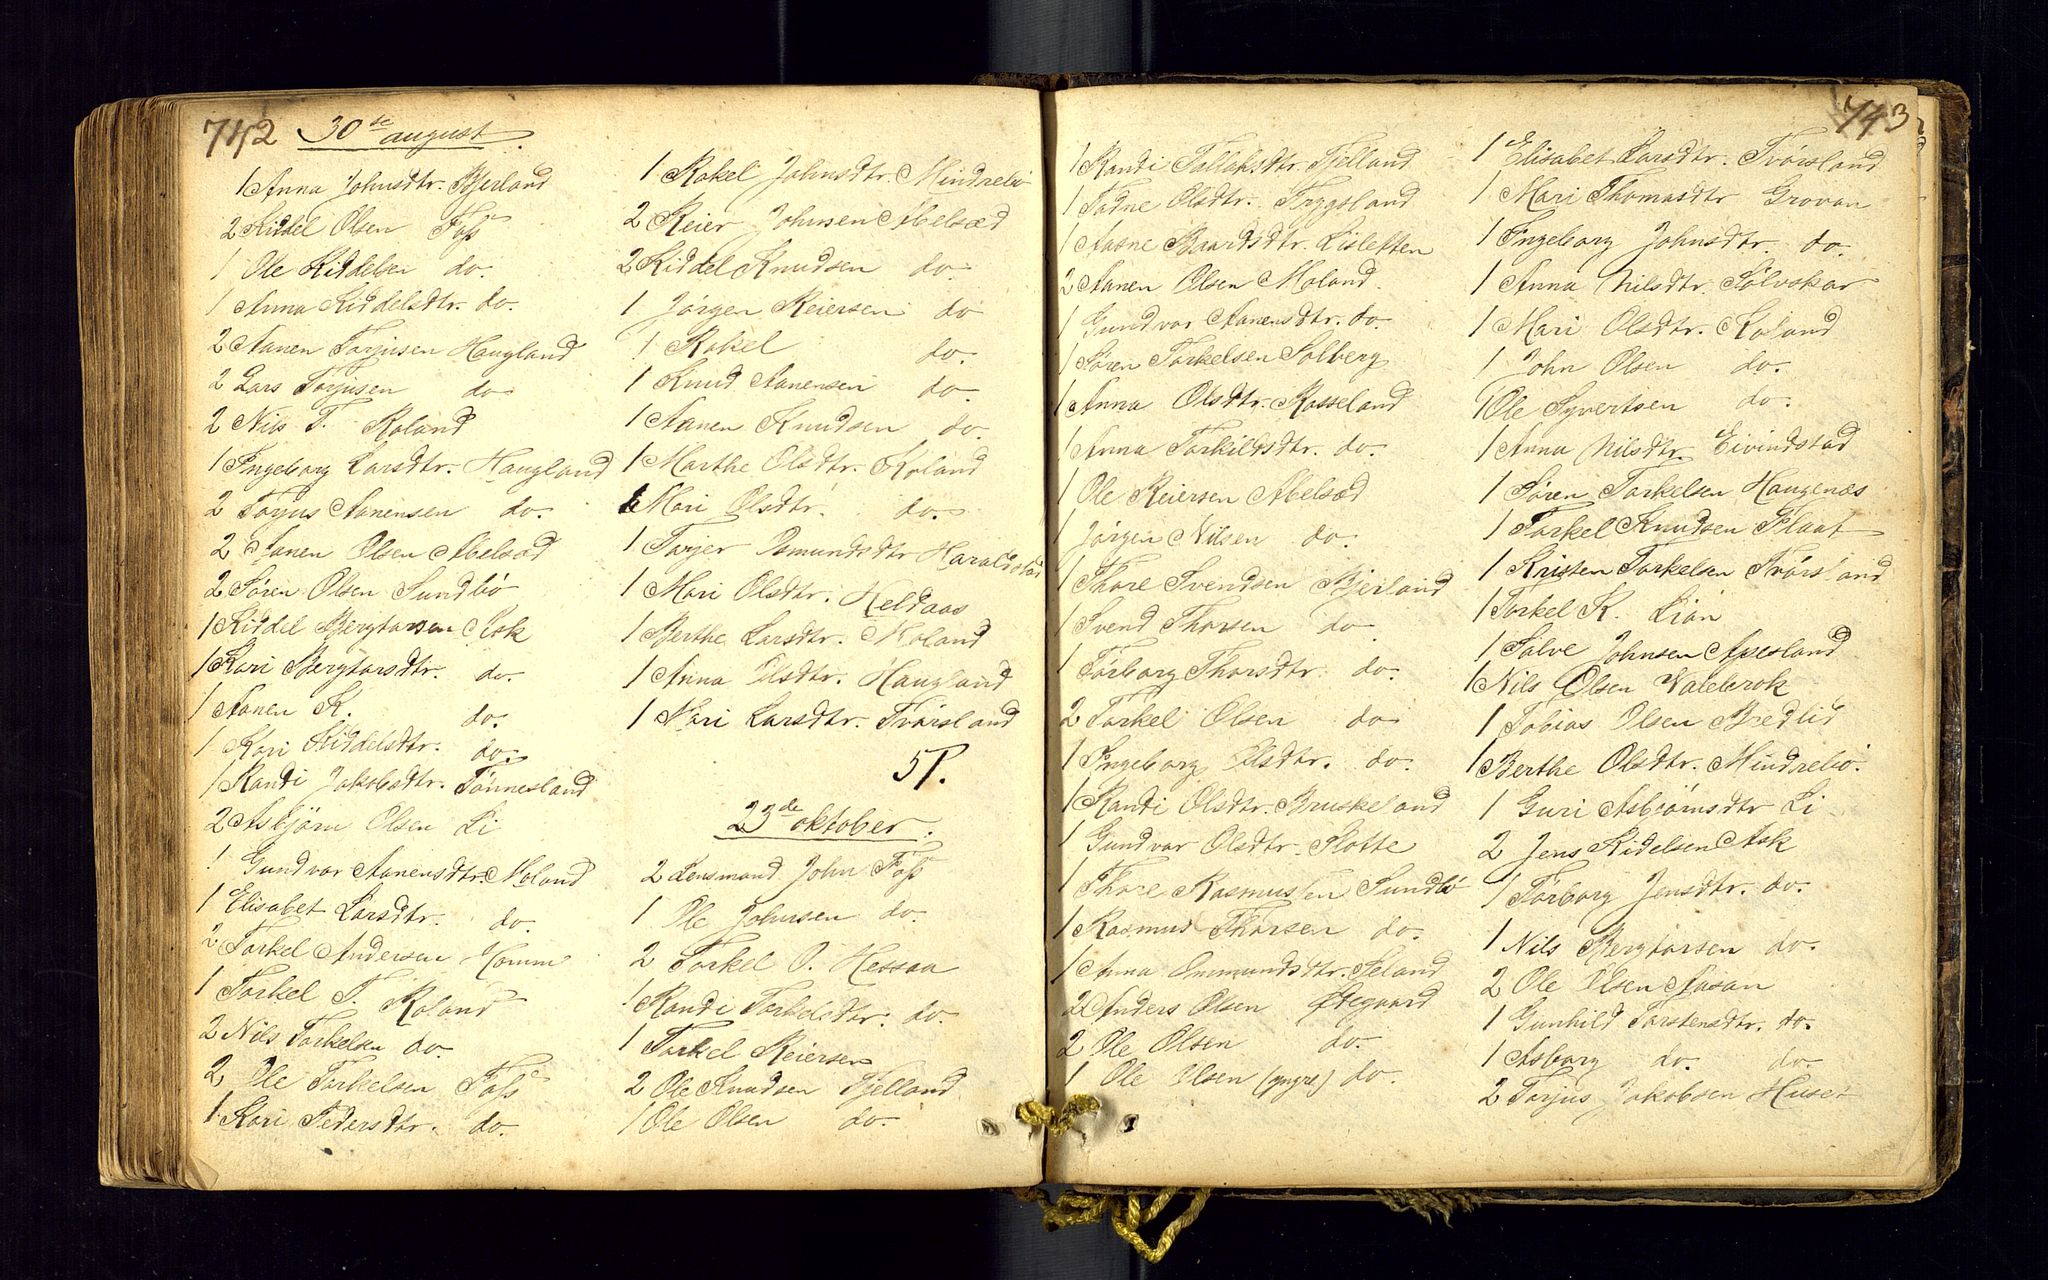 742 30te august.
1 Anna Johnsdtr. Bjerland
2 Kiddel Olsen Foss
1 Ole Kiddelsen do.
1 Anna Kiddelsdtr. do.
2 Aanen Torjusen Haugland
2 Lars Torjusen do
2 Nils T. Roland
1 Ingeborg Larsdtr. Haugland
2 Torjus Aanensen do.
2 Aanen Olsen Abelsæd
2 Søren Olsen Sundbø
1 Kiddel Bergtorsen Ask
1 Kari Bergtorsdtr. do.
1 Aanen K. do.
1 Kari Kiddelsdtr. do.
1 Randi Jakobsdtr. Tønnesland
2 Asbjørn Olsen Li
1 Gundvor Aanensdtr. Moland
1 Elisabet Larsdtr. do.
2 Torkel Andersen Homm
1 Torkel T. Roland
2 Nils Torkelsen do.
2 Ole Torkelsen Foss
1 Kari Pedersdtr. do.
1 Rakel Johnsdtr. Mindrebø
2 Reier Johnsen Abelsæd
2 Kiddel Knudsen do
1 Jørgen Reiersen do
1 Rakel do.
1 Knud Aanensen do.
1 Aanen Knudsen do.
1 Marthe Olsdtr. Roland
1 Mari Olsdtr. do.
1 Torjer Osmundsdtr Haraldstad
1 Mari Olsdtr. Heldaas
1 Berthe Larsdtr. Moland
1 Anna Olsdtr. Haugland
1 Mari Larsdtr. Tvorsland
51.
23de oktober.
2 Lensmand John Foss
1 Ole Johnsen do.
2 Torkel O. Hessaa
1 Randi Torkelsdtr. do.
1 Torkel Reiersen
2 Ole Knudsen Fjelland
1 Ole Olsen do.
743
1 Randi Tallaksdtr. Fjelland
1 Tadne Olsdtr. Trygsland
1 Aasne Baardsdtr. Lisleften
2 Aanen Olsen Moland.
1 Gundvor Aanensdtr. do.
1 Søren Torkelsen Solberg
1 Anna Olsdtr. Rosseland
1 Anna Torkildsdtr. do.
1 Ole Reiersen Abelsæd
1 Jørgen Nilsen do.
1 Thore Svendsen Bjerland
1 Svend Thorsen do.
1 Torborg Thorsdtr. do.
2 Torkel Olsen do
1 Ingeborg Olsdtr. do.
1 Randi Olsdtr. Bruskeland
1 Gundvor Olsdtr. Flotte
1 Thore Rasmussen Sundbø
1 Rasmus Thorsen do.
1 Anna Ommundsdtr. Seland
2 Anders Olsen Øvegaard
2 Ole Olsen do.
1 Ole Olsen (yngre) do.
1 Elisabet Larsdtr. Tvorsland
1 Mari Thomasdtr Grovan
1 Ingeborg Johnsdtr. do.
1 Anna Nilsdtr. Sølvskar
1 Mari Olsdtr. Roland
1 John Olsen do.
1 Ole Syvertsen do.
1 Anna Nilsdtr. Eivindstad
1 Søren Torkelsen Haugenæs
1 Torkel Knudsen Flaat
1 Kristen Torkelsen Tvorsland
1 Torkel K. Lian
1 Salve Johnsen Apesland
1 Nils Olsen Valebrok
1 Tobias Olsen Bredlid
1 Berthe Olsdtr. Mindrebø.
1 Guri Asbjørnsdtr Li
2 Jens Kidelsen Ask
1 Torborg Jensdtr. do.
1 Nils Bergtorsen do.
2 Ole Olsen Aasan
1 Gunhild Torstensdtr. do.
1 Asborg do. do.
2 Torjus Jakobsen Huser